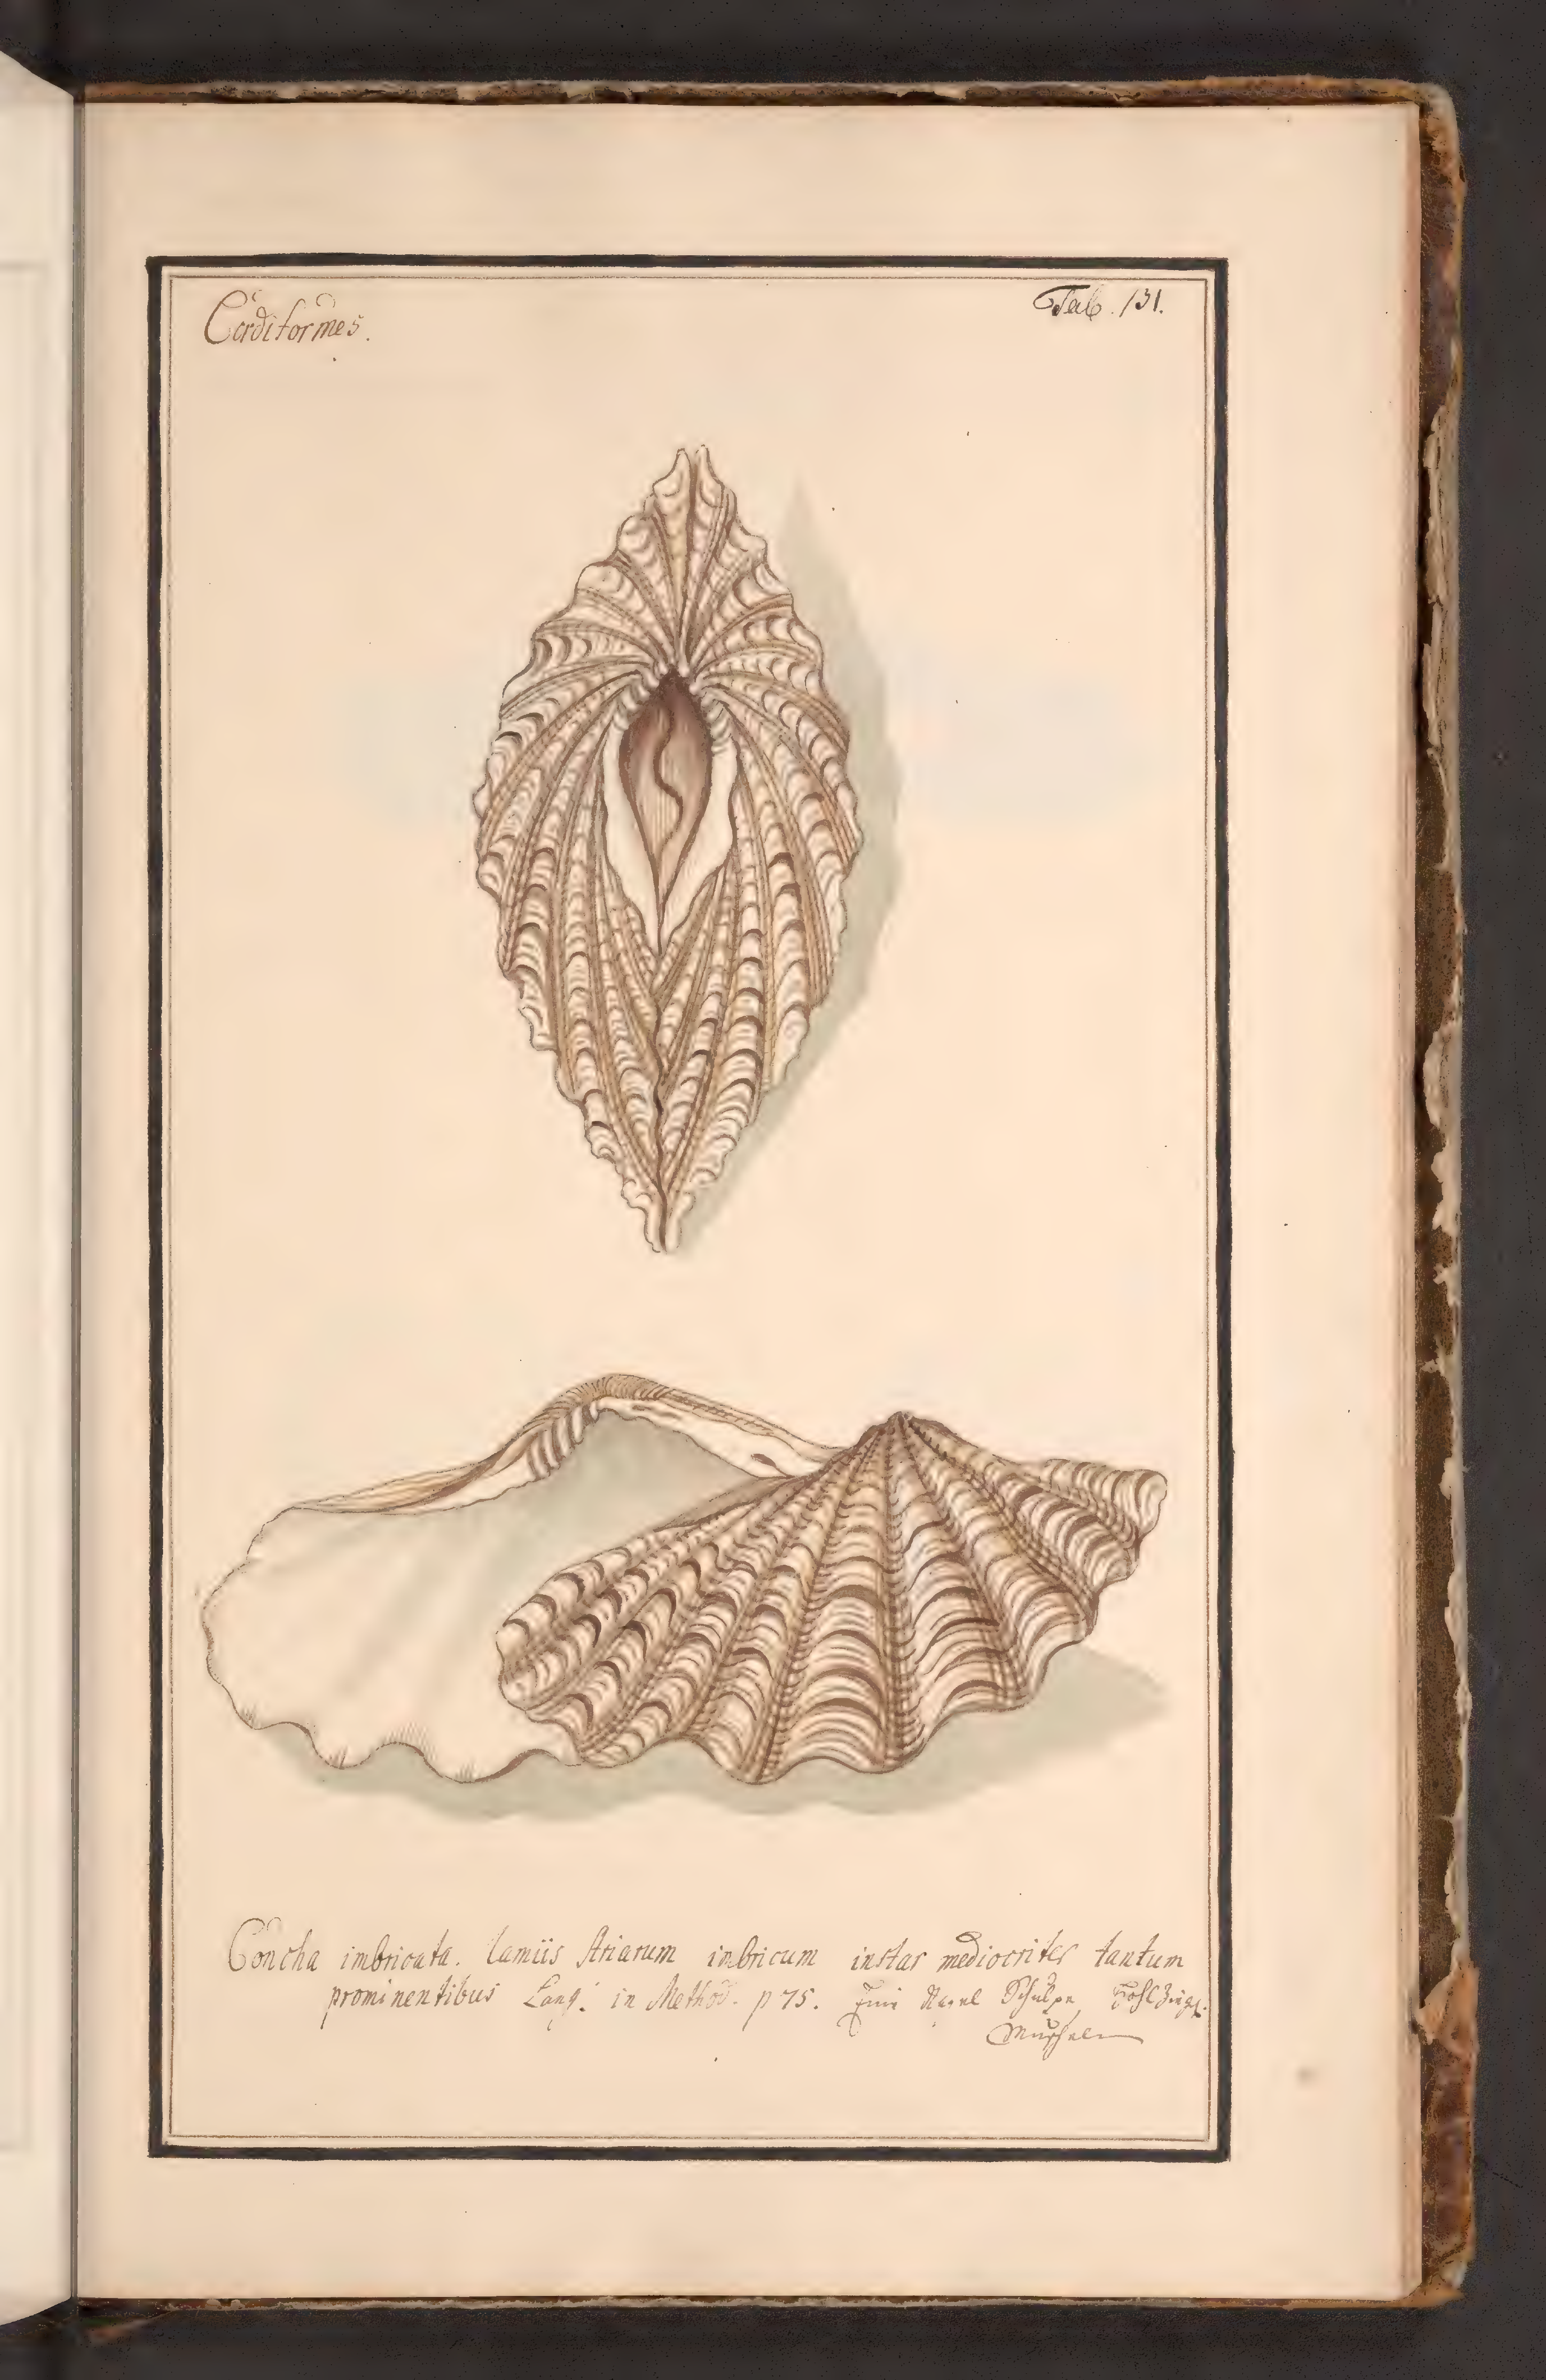 Cordiformes.
Tab. 131.
Concha imbricata. lamiis striarum imbricum instar mediocriter tantum
prominentibus Lang: in Method. p 75. Eine Nagel Schulpe, Hohl Ziegl.
Muschel